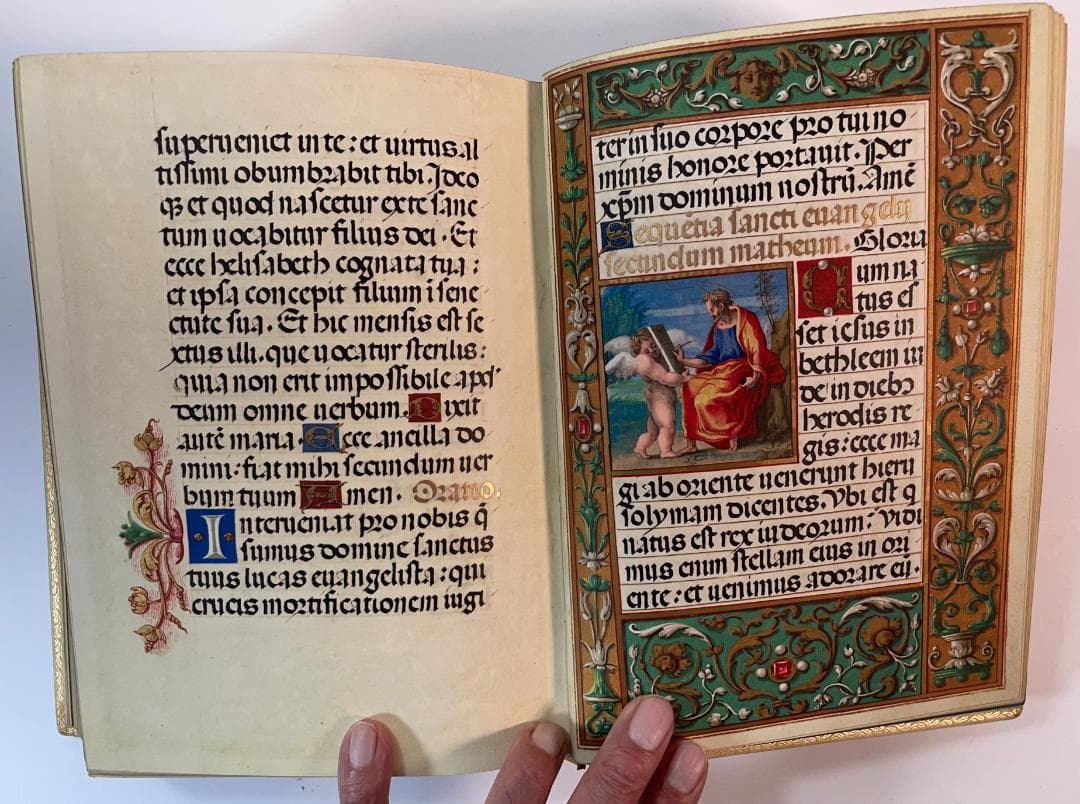 superueniet in te: et uirtus al
tissimi obumbrabit tibi. Ideo
q̃ et quod nascetur ex te sanc
tum uocabitur filius dei. Et
ecce helisabeth cognata tua:
et ipsa concepit filium ĩ sene
ctute sua. Et hic mensis est se
xtus illi. que uocatur sterilis:
quia non erit impossibile apd'
deum omne uerbum. Dixit
autẽ maria. Ecce ancilla do
mini: fiat mihi secundum uer
bum tuum Amen. Oratio.
Interueniat pro nobis q̃
sumus domine sanctus
tuus lucas euangelista: qui
crucis mortificationem iugi
ter in suo corpore pro tui no
minis honore portauit. Per
xp̃m dominum nostrũ. Amẽ
Sequẽtia sancti euangely
secundum matheum. Gloria
Cum na
tus es
set iesus in
bethleem iu
de in diebꝫ
herodis re
gis: ecce ma
gi ab oriente uenerunt hieru
solymam dicentes. Vbi est q
natus est rex iudeorum: Vidi
mus enim stellam eius in ori
ente: et uenimus adorare eũ.